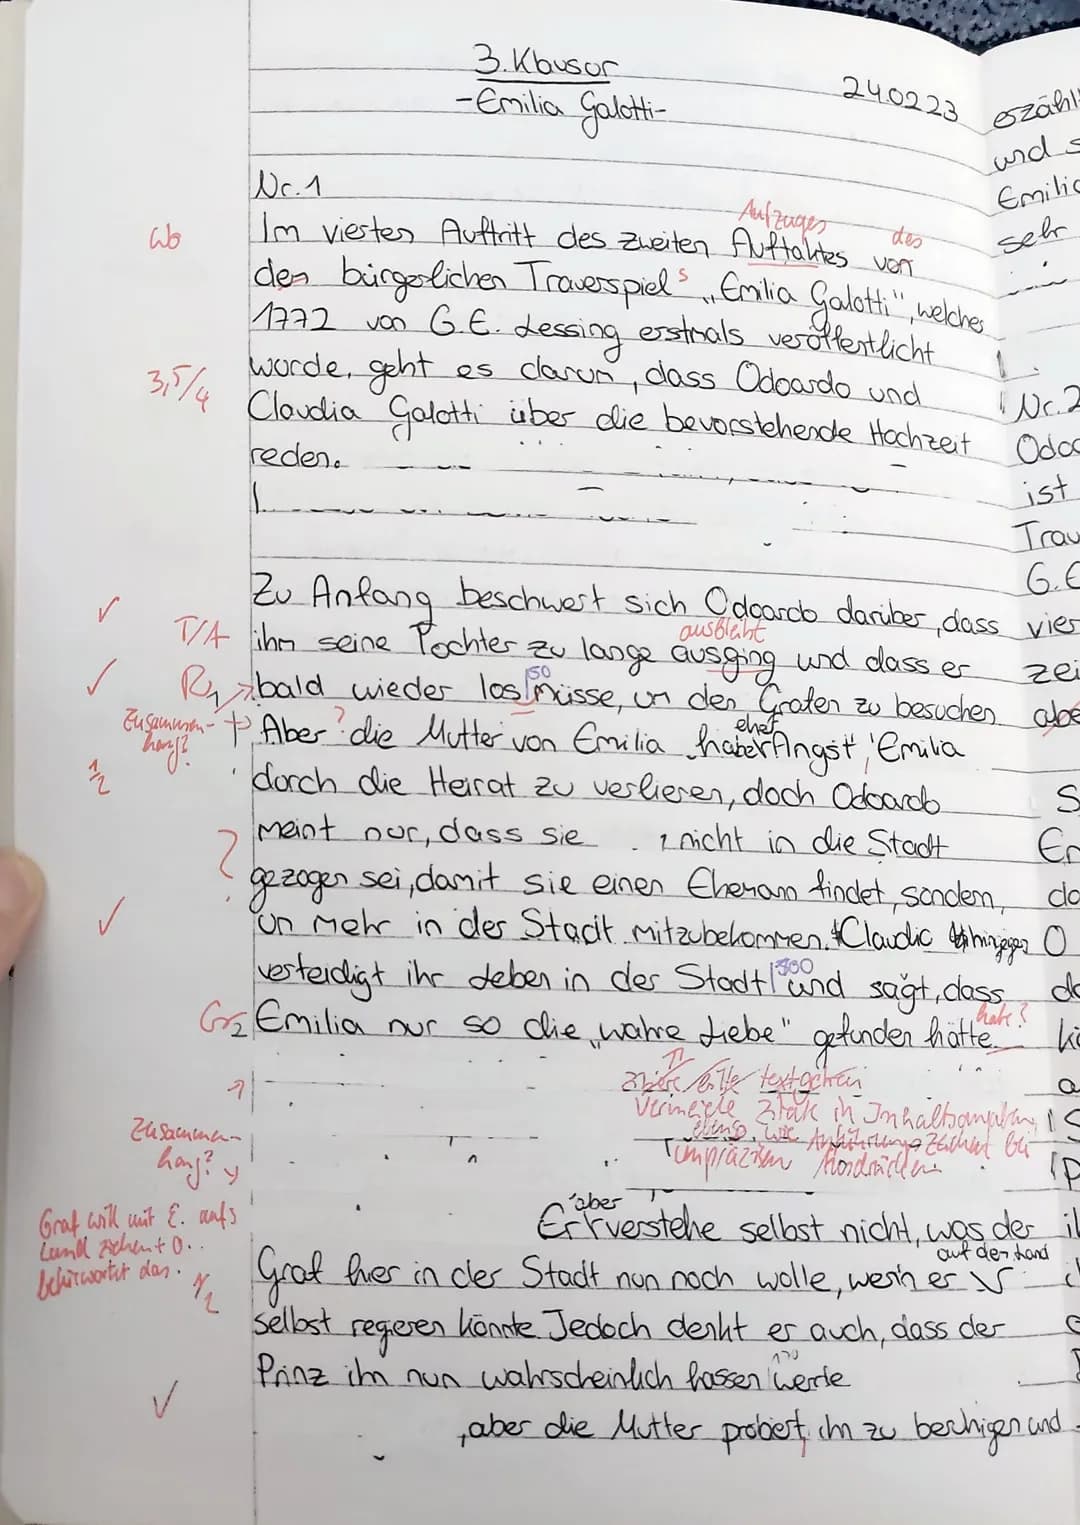 3. Klausur
-Emilia Galotti-
240223
Nr. 1
Aufzuges
des
Wo
Im vierten Auftritt des zweiten Auftaktes von
den bürgerlichen Trauerspiel s „Emilia Galotti", welches
1772 von G.E. Lessing erstmals veröffentlicht
3,5/4
wurde, geht es darum, dass Odoardo und
Claudia Galotti über die bevorstehende Hochzeit
reden.
Zu Anfang beschwert sich Odoardo darüber, dass
ausbleibt
T/A
ihm seine Tochter zu lange ausging und dass er
R
bald wieder los müsse, um den Grafen zu besuchen
50
Zusammen-
hang?
eher
Aber ? die Mutter von Emilia habe Angst, Emilia
1/2
durch die Heirat zu verlieren, doch Odoardo
meint nur, dass sie nicht in die Stadt
?
gezogen sei, damit sie einen Ehemann findet, sondern,
um mehr in der Stadt mitzubekommen. Claudia hingegen
verteidigt ihr Leben in der Stadt und sagt, dass
100
Gr2
Emilia nur so die „wahre Liebe" gefunden hätte.
habe?
Zitiere bitte textgetreu
Vermeide Zitate in Inhaltsangaben,
ebenso, wie Anführungszeichen bei
unpräzisen Ausdrücken
Zusammen-
hang?
aber
Er verstehe selbst nicht, was der
auf dem Land
Graf will mit E. aufs
Land ziehen + O.
befürwortet das.
1/2
Graf hier in der Stadt nun noch wolle, wenn er
selbst regeren könnte. Jedoch denkt er auch, dass der
Prinz ihn nun wahrscheinlich hassen werde
, aber die Mutter probiert, ihn zu beruhigen und
erzähl
und s
Emilia
sehr
Nr. 2
Odoa
ist
Trau
G.E
vier
zei
abe
S
Er
do
O